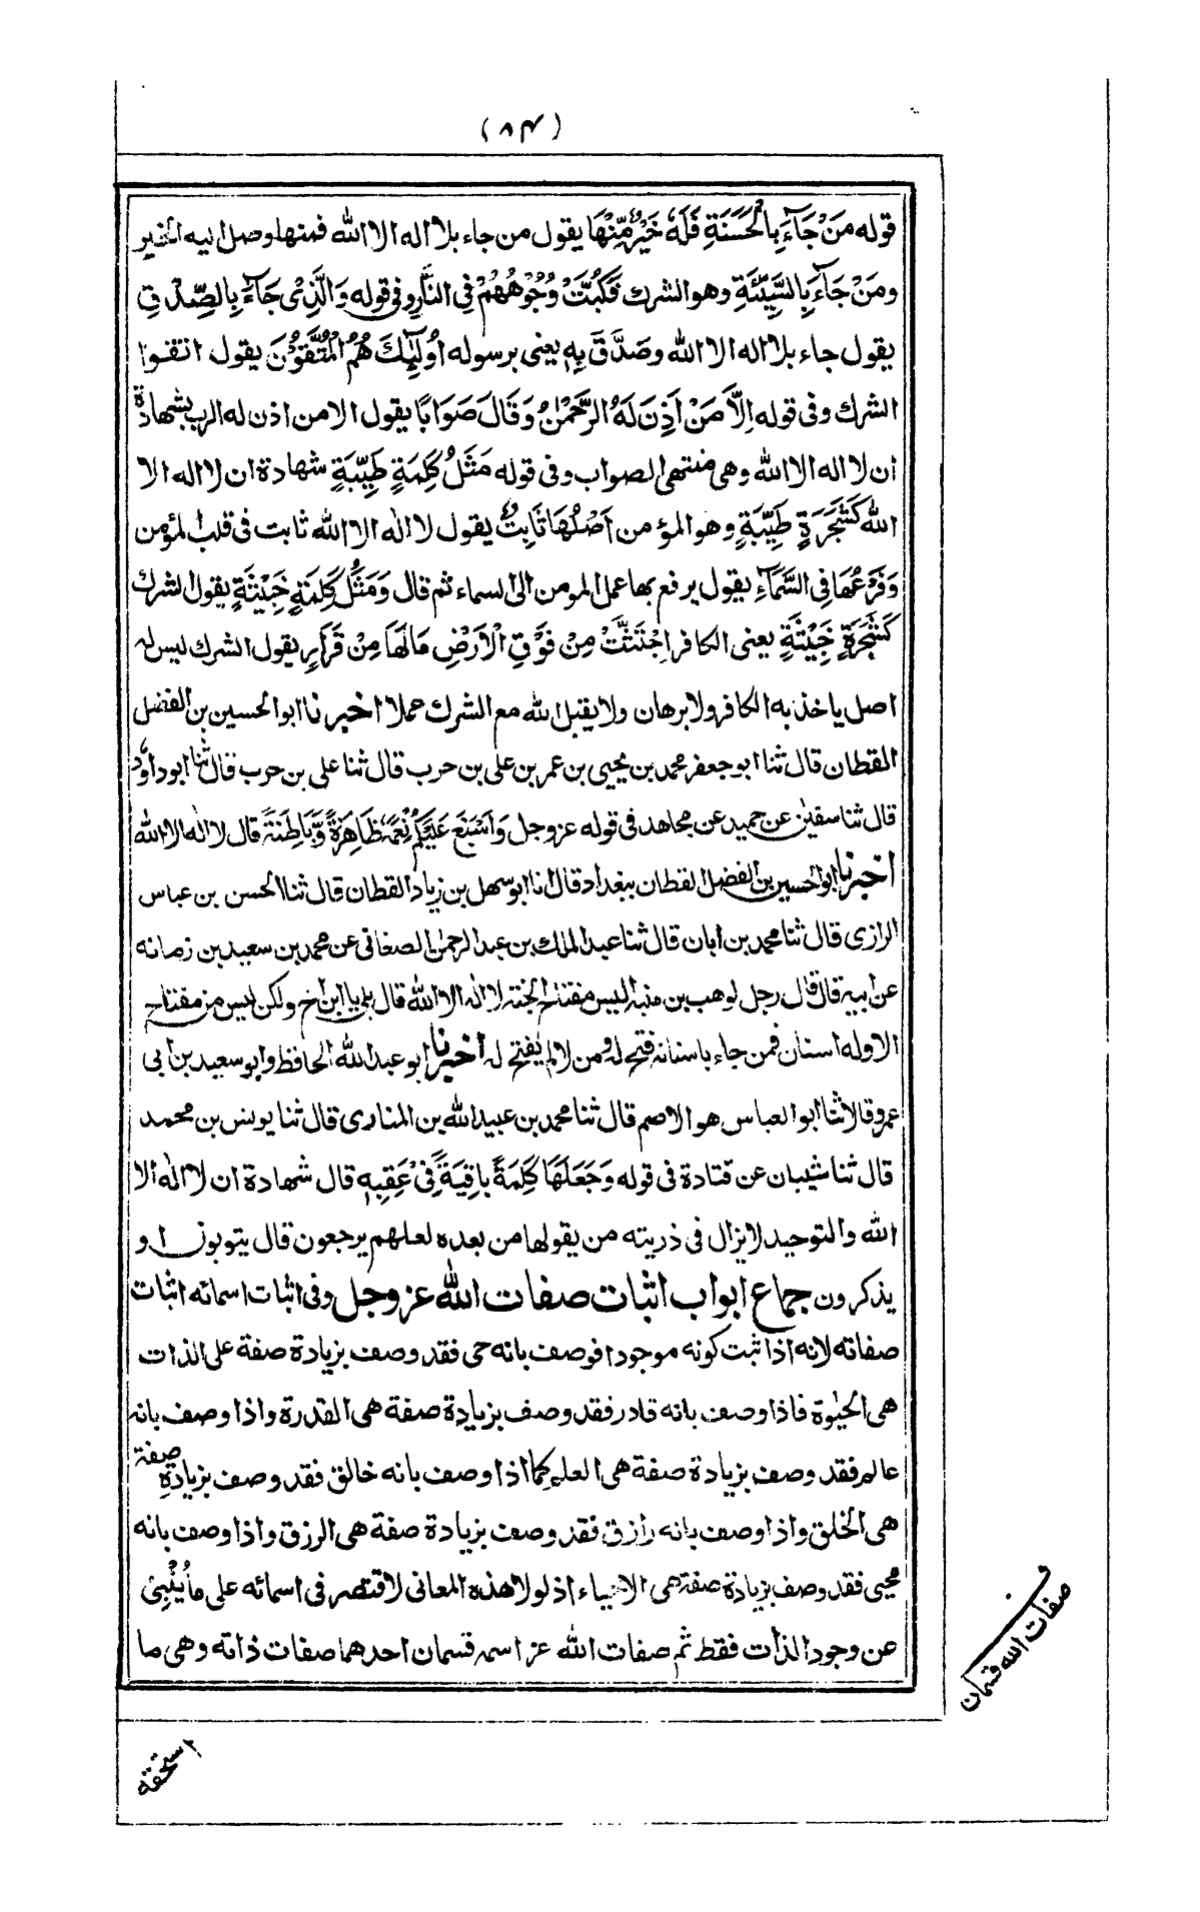 (٨٣)
قوله مَنْ جَآءَ بِالْحَسَنَةِ فَلَهٗ خَيْرٌ مِّنْهَا يقول من جاء بلا اله الا الله فمنها وصل اليه الخير
ومَنْ جَآءَ بِالسَّيِّئَةِ وهو الشرك فَكُبَّتْ وُجُوْهُهُمْ فِي النَّارِ وفى قوله وَالَّذِىْ جَآءَ بِالصِّدْقِ
يقول جاء بلا اله الا الله وصَدَّقَ بِهٖ يعنى برسوله اُولٰٓئِكَ هُمُ الْمُتَّقُوْنَ يقول اتقوا
الشرك وفى قوله اِلَّا مَنْ اَذِنَ لَهُ الرَّحْمٰنُ وَقَالَ صَوَابًا يقول الا من اذن له الرب بشهادة
ان لا اله الا الله وهى منتهى الصواب وفى قوله مَثَلُ كَلِمَةٍ طَيِّبَةٍ شهادة ان لا اله الا
الله كَشَجَرَةٍ طَيِّبَةٍ وهو المؤمن اَصْلُهَا ثَابِتٌ يقول لا اله الا الله ثابت فى قلب المؤمن
وَفَرْعُهَا فِى السَّمَآءِ يقول يرفع بها عمل المومن الى السماء ثم قال وَمَثَلُ كَلِمَةٍ خَبِيْثَةٍ يقول الشرك
كَشَجَرَةٍ خَبِيْثَةٍ يعنى الكافر اجْتُثَّتْ مِنْ فَوْقِ الْاَرْضِ مَا لَهَا مِنْ قَرَارٍ يقول الشرك ليس له
اصل ياخذ به الكافر ولا برهان ولا يقبل الله مع الشرك عملا اخبرنا ابو الحسين بن الفضل
القطان قال ثنا ابو جعفر محمد بن يحيى بن عمر بن على بن حرب قال ثنا على بن حرب قال ثنا ابو داود
قال ثنا سفين عن حميد عن مجاهد فى قوله عز وجل وَاَسْبَغَ عَلَيْكُمْ نِعَمَهٗ ظَاهِرَةً وَّبَاطِنَةً قال لا اله الا الله
اخبرنا ابو الحسين بن الفضل القطان ببغداد قال انا ابو سهل بن زياد القطان قال ثنا الحسن بن عباس
الرازى قال ثنا محمد بن ابان قال ثنا عبد الملك بن عبد الرحمن الصغانى عن محمد بن سعيد بن زمانه
عن ابيه قال قال رجل لوهب بن منبه اليس مفتاح الجنة لا اله الا الله قال بلى يا ابن اخ ولكن ليس من مفتاح
الا وله اسنان فمن جاء باسنانه فتح له ومن لا لم يفتح له اخبرنا ابو عبد الله الحافظ وابو سعيد بن ابى
عمرو قالا ثنا ابو العباس هو الاصم قال ثنا محمد بن عبيد الله بن المنادى قال ثنا يونس بن محمد
قال ثنا شيبان عن قتادة فى قوله وَجَعَلَهَا كَلِمَةً بَاقِيَةً فِىْ عَقِبِهٖ قال شهادة ان لا اله الا
الله والتوحيد لا يزال فى ذريته من يقولها من بعده لعلهم يرجعون قال يتوبون او
يذكرون جماع ابواب اثبات صفات الله عز وجل وفى اثبات اسمائه اثبات
صفاته لانه اذا ثبت كونه موجودا فوصف بانه حى فقد وصف بزيادة صفة على الذات
هى الحيوة فاذا وصف بانه قادر فقد وصف بزيادة صفة هى القدرة واذا وصف بانه
عالم فقد وصف بزيادة صفة هى العلم كما اذا وصف بانه خالق فقد وصف بزيادة صفة
هى الخلق واذا وصف بانه رازق فقد وصف بزيادة صفة هى الرزق واذا وصف بانه
محيى فقد وصف بزيادة صفة هى الاحياء اذ لولا هذه المعانى لاقتصر فى اسمائه على ما يُنْبِئ
عن وجود الذات فقط ثم صفات الله عز اسمه قسمان احدهما صفات ذاته وهى ما
ف
صفات الله قسمان
استحقه